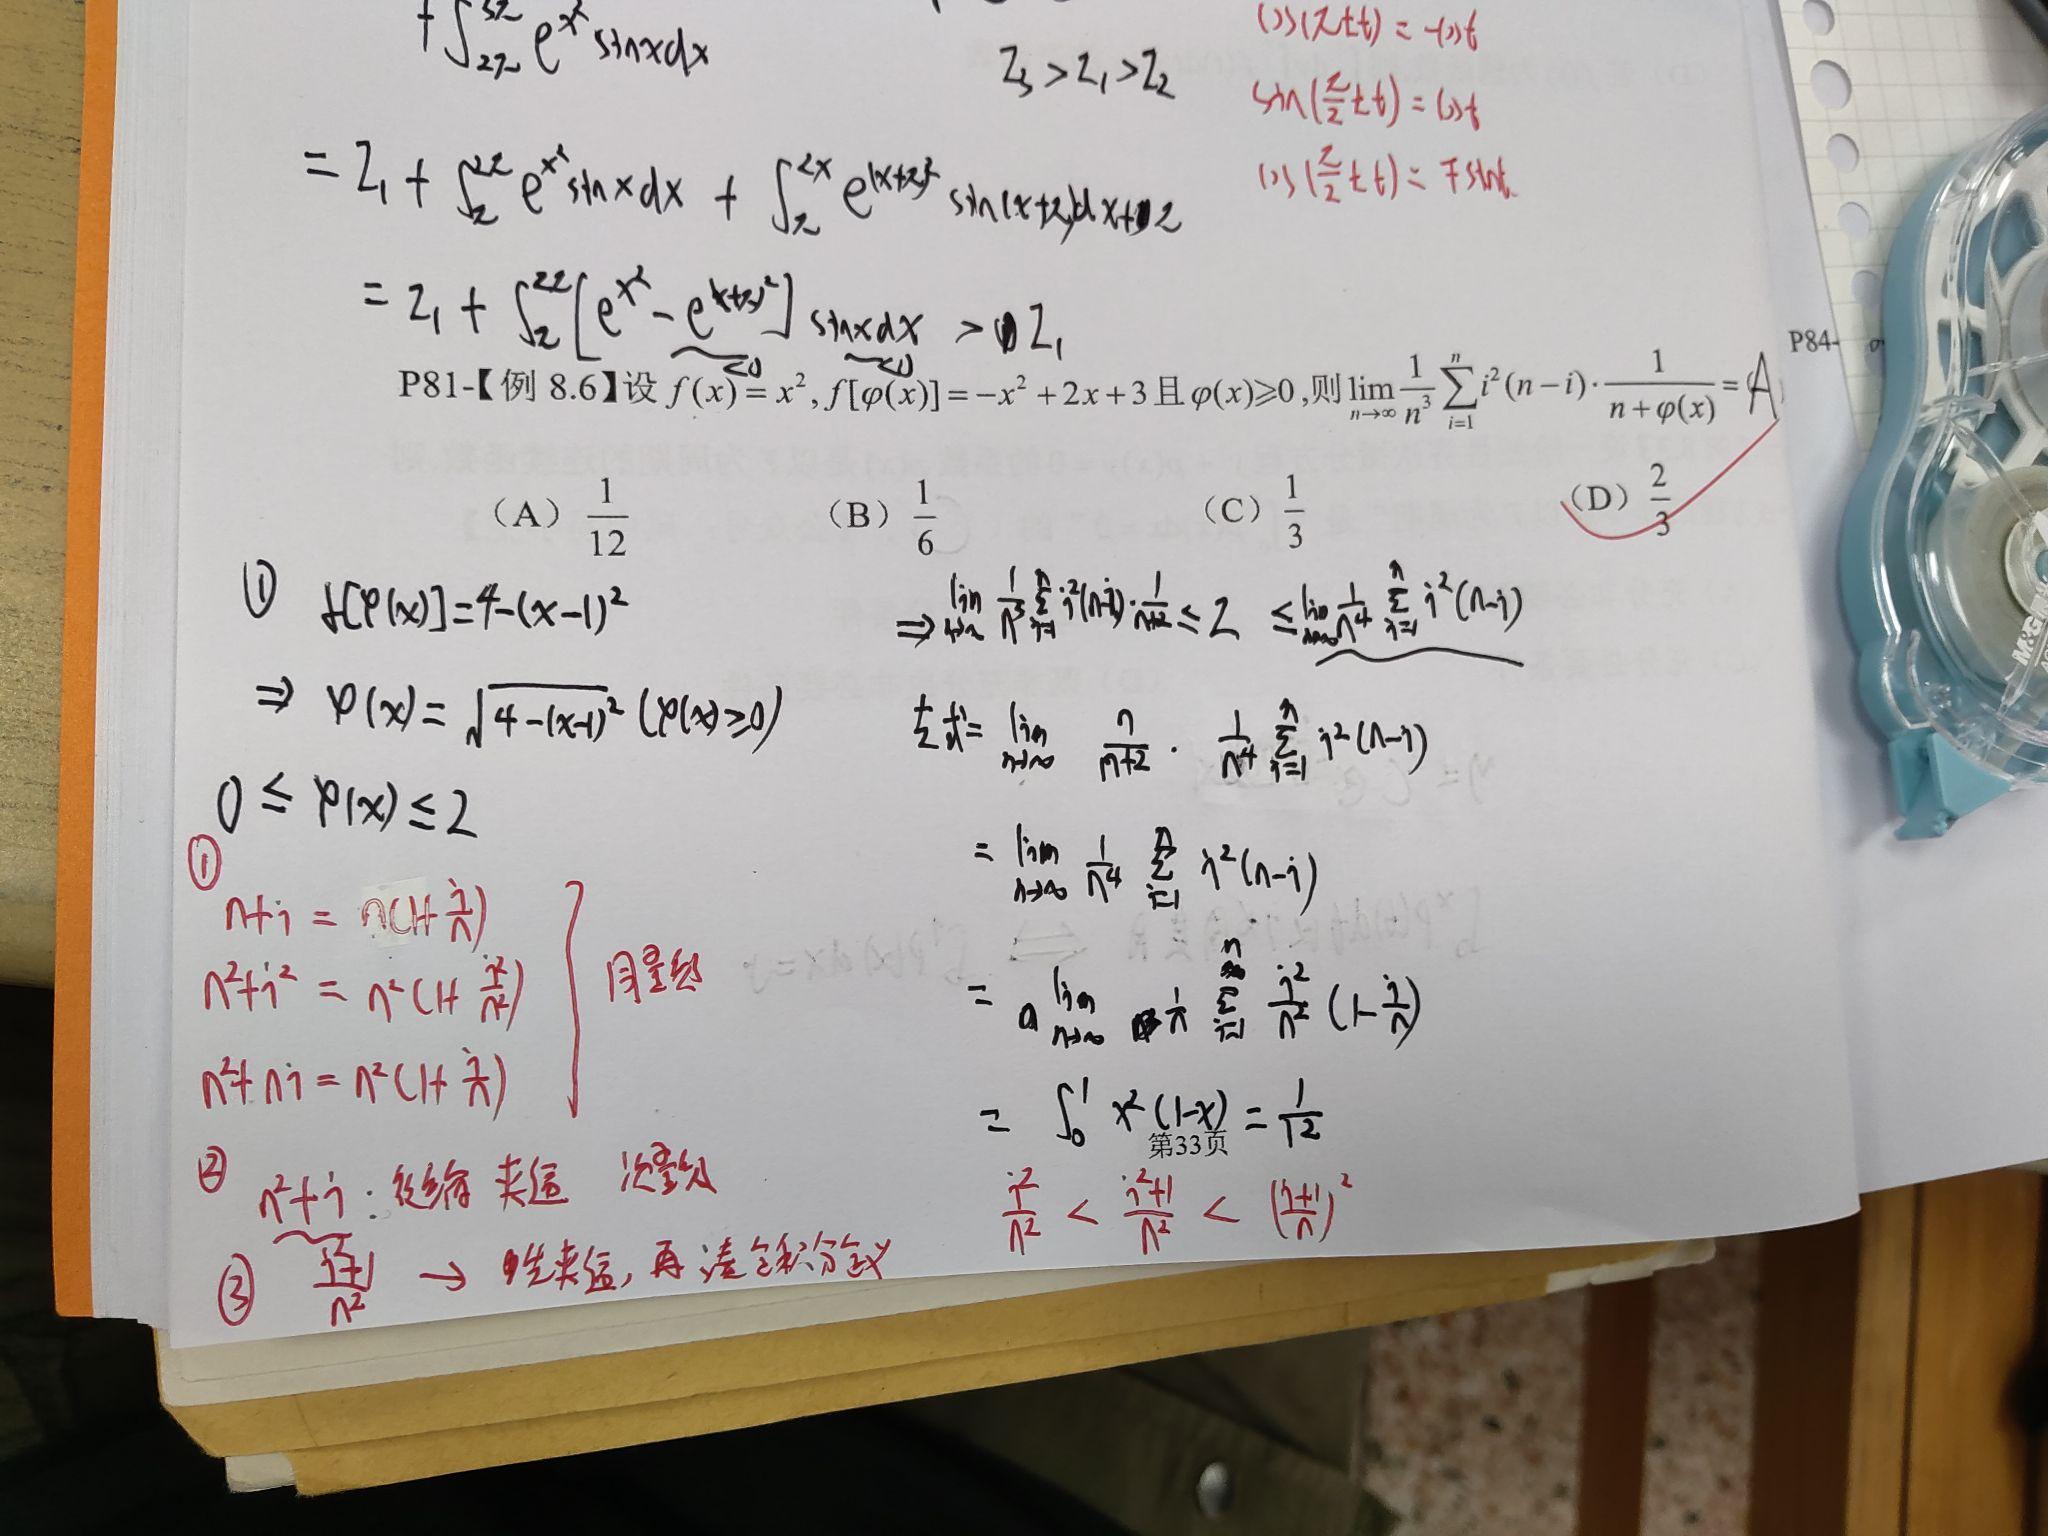 +∫_{2π}^{3π} e^{x²} sinxdx
I₃ > I₁ > I₂
cos(π±t) = -cost
sin(π/2±t) = cost
cos(π/2±t) = ∓sint.
= I₁ + ∫_π^{2π} e^{x²} sinxdx + ∫_π^{2π} e^{(x+π)²} sin(x+π)dx
= I₁ + ∫_π^{2π} [e^{x²} - e^{(x+π)²}] sinxdx > I₁
<0 <0
P84-
P81-【例 8.6】设 f(x) = x², f[φ(x)] = -x² + 2x + 3 且 φ(x)≥0, 则 lim_{n→∞} 1/n³ ∑_{i=1}^{n} i²(n-i)· 1/(n+φ(x)) = A
(A) 1/12 (B) 1/6 (C) 1/3 (D) 2/3
① f[φ(x)] = 4-(x-1)²
⇒ φ(x) = √(4-(x-1)²) (φ(x)≥0)
0 ≤ φ(x) ≤ 2
⇒ lim_{n→∞} 1/n³ ∑_{i=1}^{n} i²(n-i)· 1/(n+2) ≤ I ≤ lim_{n→∞} 1/n⁴ ∑_{i=1}^{n} i²(n-i)
左式= lim_{n→∞} n/(n+2) · 1/n⁴ ∑_{i=1}^{n} i²(n-i)
= lim_{n→∞} 1/n⁴ ∑_{i=1}^{n} i²(n-i)
= lim_{n→∞} 1/n ∑_{i=1}^{n} i²/n² (1-i/n)
= ∫₀¹ x²(1-x) = 1/12
第33页
①
n+i = n(1+i/n)
n²+i² = n²(1+i²/n²)
n²+ni = n²(1+i/n)
同量级
② n²+i : 放缩 夹逼 次量级
③ (i²+1)/n² → 先夹逼, 再凑定积分定义
i²/n² < (i²+1)/n² < ((i+1)/n)²
M&G